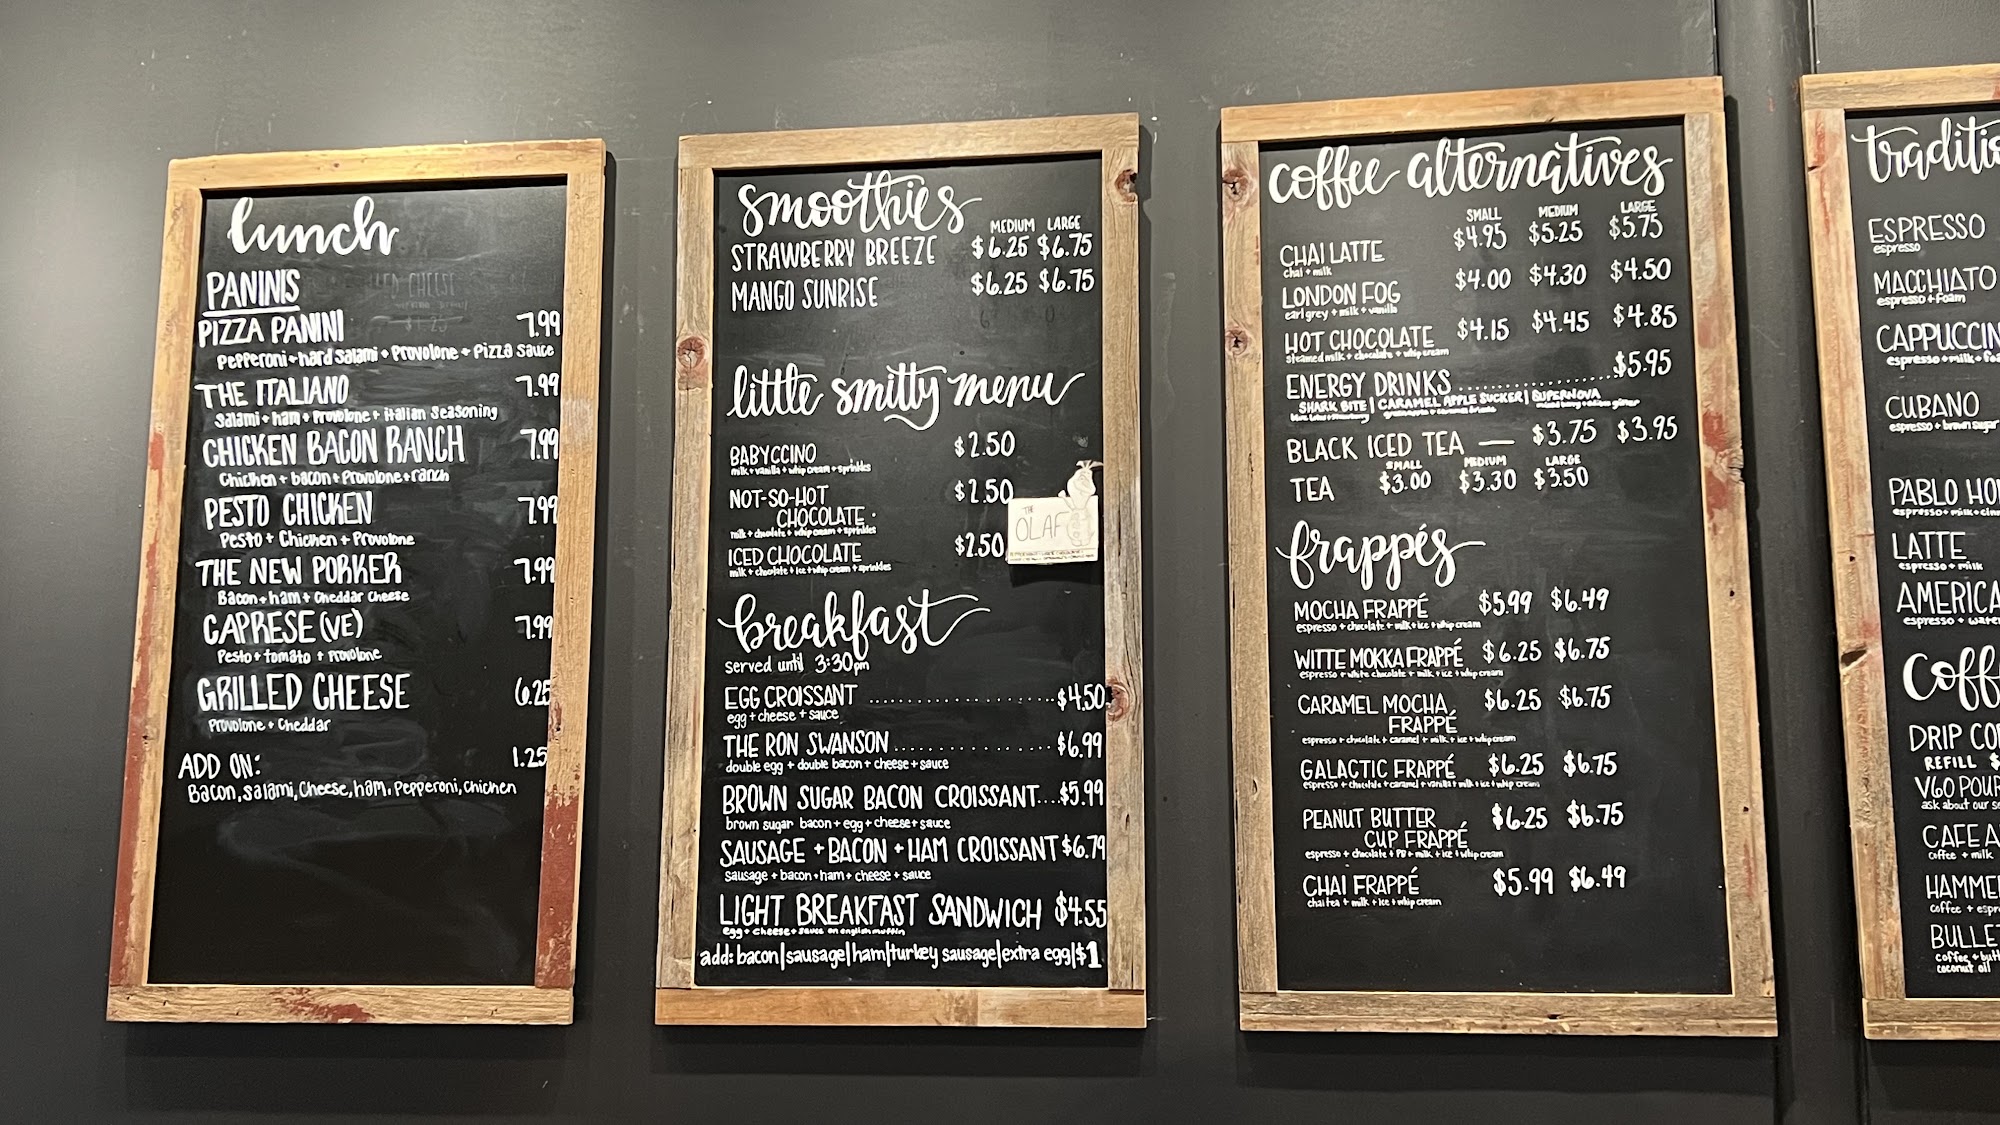 lunch
PANINIS
PIZZA PANINI 7.99
Pepperoni + hard Salami + Provolone + Pizza Sauce
THE ITALIANO 7.99
Salami + ham + Provolone + italian Seasoning
CHICKEN BACON RANCH 7.99
Chicken + bacon + Provolone + ranch
PESTO CHICKEN 7.99
Pesto + Chicken + Provolone
THE NEW PORKER 7.99
Bacon + ham + Cheddar Cheese
CAPRESE (VE) 7.99
Pesto + tomato + Provolone
GRILLED CHEESE 6.25
Provolone + Cheddar
ADD ON: 1.25
Bacon, Salami, Cheese, ham, Pepperoni, chicken
smoothies
MEDIUM LARGE
STRAWBERRY BREEZE $6.25 $6.75
MANGO SUNRISE $6.25 $6.75
little smitty menu
BABYCCINO $2.50
milk + vanilla + whip cream + sprinkles
NOT-SO-HOT $2.50
CHOCOLATE
milk + chocolate + whip cream + sprinkles
ICED CHOCOLATE $2.50
milk + chocolate + ice + whip cream + sprinkles
THE
OLAF
breakfast
served until 3:30pm
EGG CROISSANT ..................... $4.50
egg + cheese + sauce
THE RON SWANSON ................ $6.99
double egg + double bacon + cheese + sauce
BROWN SUGAR BACON CROISSANT.... $5.99
brown sugar bacon + egg + cheese + sauce
SAUSAGE + BACON + HAM CROISSANT $6.79
sausage + bacon + ham + cheese + sauce
LIGHT BREAKFAST SANDWICH $4.55
egg + cheese + sauce on english muffin
add: bacon|sausage|ham|turkey sausage|extra egg|$1
coffee alternatives
SMALL MEDIUM LARGE
CHAI LATTE $4.95 $5.25 $5.75
chai + milk
LONDON FOG $4.00 $4.30 $4.50
earl grey + milk + vanilla
HOT CHOCOLATE $4.15 $4.45 $4.85
steamed milk + chocolate + whip cream
ENERGY DRINKS .................... $5.95
SHARK BITE | CARAMEL APPLE SUCKER | SUPERNOVA
BLACK ICED TEA — $3.75 $3.95
SMALL MEDIUM LARGE
TEA $3.00 $3.30 $3.50
frappés
MOCHA FRAPPÉ $5.99 $6.49
espresso + chocolate + milk + ice + whip cream
WITTE MOKKA FRAPPÉ $6.25 $6.75
espresso + white chocolate + milk + ice + whip cream
CARAMEL MOCHA $6.25 $6.75
FRAPPÉ
espresso + chocolate + caramel + milk + ice + whip cream
GALACTIC FRAPPÉ $6.25 $6.75
espresso + chocolate + caramel + vanilla + milk + ice + whip cream
PEANUT BUTTER $6.25 $6.75
CUP FRAPPÉ
espresso + chocolate + PB + milk + ice + whip cream
CHAI FRAPPÉ $5.99 $6.49
chai tea + milk + ice + whip cream
traditio
ESPRESSO
espresso
MACCHIATO
espresso + foam
CAPPUCCIN
espresso + milk + foa
CUBANO
espresso + brown sugar
PABLO HO
espresso + milk + cinn
LATTE
espresso + milk
AMERICA
espresso + water
Coff
DRIP CO
REFILL $
V60 POUR
ask about our s
CAFE A
coffee + milk
HAMME
coffee + espr
BULLE
coffee + butt
coconut oil